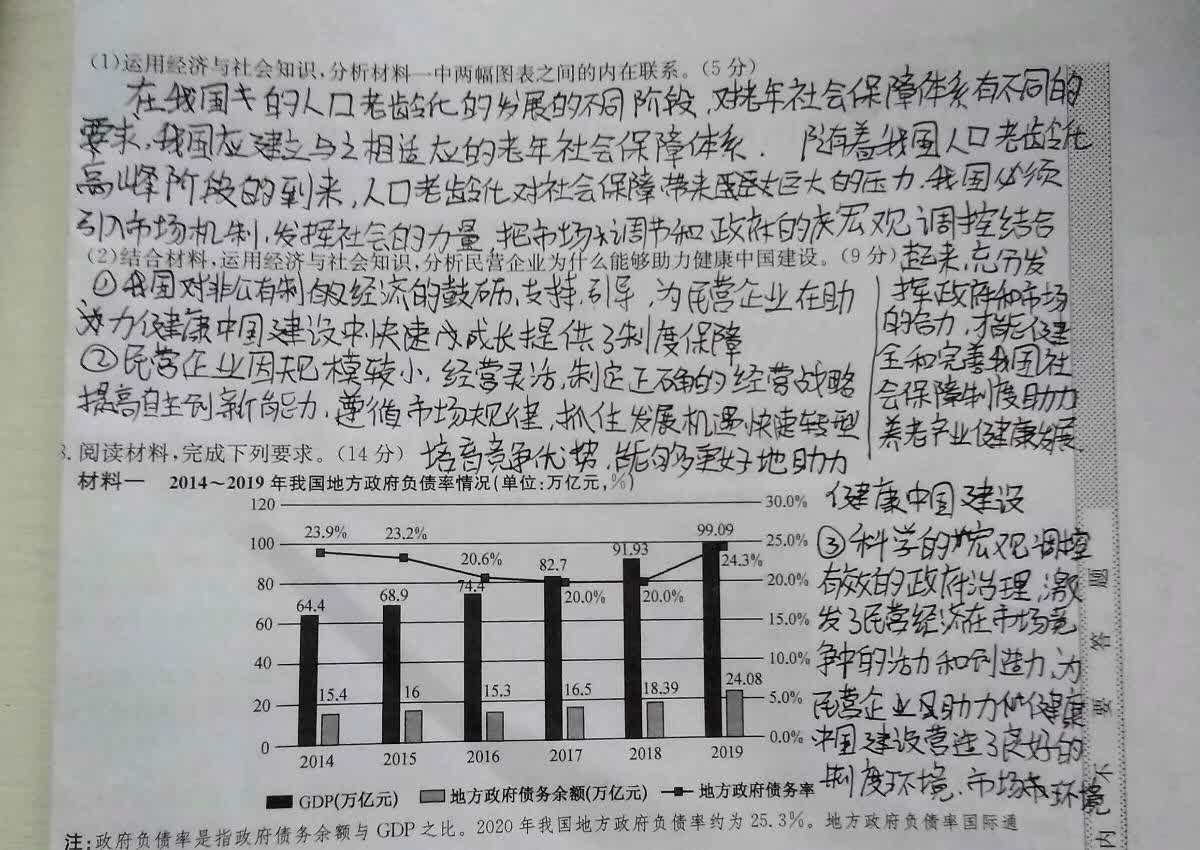 (1)运用经济与社会知识,分析材料一中两幅图表之间的内在联系。(5分)
在我国的人口老龄化的发展的不同阶段,对老年社会保障体系有不同的
要求,我国应建立与之相适应的老年社会保障体系. 随着我国人口老龄化
高峰阶段的到来,人口老龄化对社会保障带来巨大的压力.我国必须
引入市场机制,发挥社会的力量,把市场调节和政府的宏观调控结合
起来,充分发
挥政府和市场
的合力,才能健
全和完善我国社
会保障制度助力
养老产业健康发展
(2)结合材料,运用经济与社会知识,分析民营企业为什么能够助力健康中国建设。(9分)
①我国对非公有制经济的鼓励,支持,引导,为民营企业在助
力健康中国建设中快速成长提供了制度保障
②民营企业因规模较小,经营灵活,制定正确的经营战略
提高自主创新能力,遵循市场规律,抓住发展机遇,快速转型
培育竞争优势,能够更好地助力
健康中国建设
③科学的宏观调控
有效的政府治理,激
发了民营经济在市场竞
争中的活力和创造力,为
民营企业及助力健康
中国建设营造了良好的
制度环境,市场环境
8. 阅读材料,完成下列要求。(14分)
材料一 2014~2019年我国地方政府负债率情况(单位:万亿元,%)
120 30.0%
100 25.0%
80 20.0%
60 15.0%
40 10.0%
20 5.0%
0 0.0%
23.9% 23.2% 20.6% 20.0% 20.0% 24.3%
64.4 68.9 74.4 82.7 91.93 99.09
15.4 16 15.3 16.5 18.39 24.08
2014 2015 2016 2017 2018 2019
GDP(万亿元) 地方政府债务余额(万亿元) 地方政府债务率
注:政府负债率是指政府债务余额与GDP之比。2020年我国地方政府负债率约为25.3%。地方政府负债率国际通
题
答
要
不
内